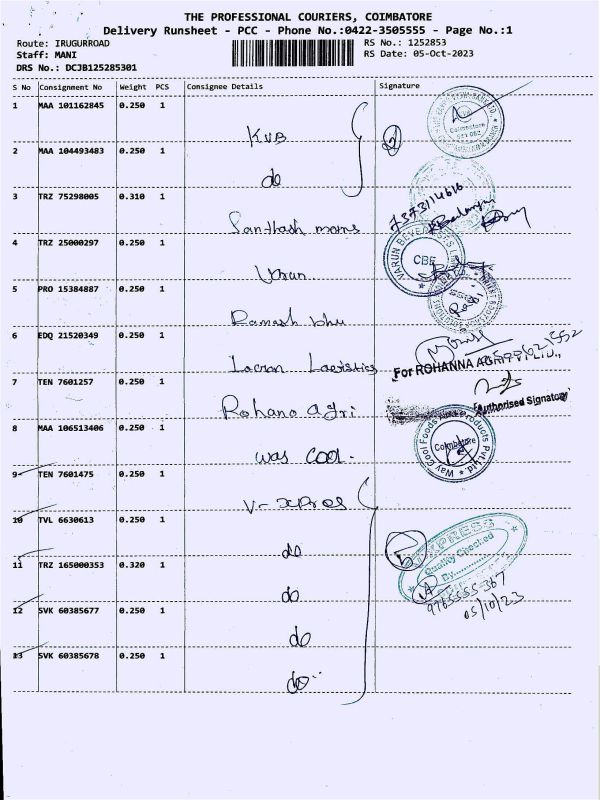 THE PROFESSIONAL COURIERS, COIMBATORE
Delivery Runsheet - PCC - Phone No.:0422-3505555 - Page No.:1
Route: IRUGURROAD RS No.: 1252853
Staff: MANI RS Date: 05-Oct-2023
DRS No.: DCJB125285301
S No Consignment No Weight PCS Consignee Details Signature
1 MAA 101162845 0.250 1
KVB
2 MAA 104493483 0.250 1
do
3 TRZ 75298005 0.310 1
7373114616
Santhosh
4 TRZ 25000297 0.250 1
VARUN BEVERAGES
CBE
5 PRO 15384887 0.250 1
Ramesh bhu
6 EDQ 21520349 0.250 1
For ROHANNA AGRI
7 TEN 7601257 0.250 1
Rohana agri
Authorised Signatory
8 MAA 106513406 0.250 1
Way Cool Foods And Products Pvt.Ltd.
Coimbatore
way cool.
9 TEN 7601475 0.250 1
V-xpres
10 TVL 6630613 0.250 1
do
EXPRESS
Quality Checked
By
11 TRZ 165000353 0.320 1
do
9765555367
05/10/23
12 SVK 60385677 0.250 1
do
13 SVK 60385678 0.250 1
do